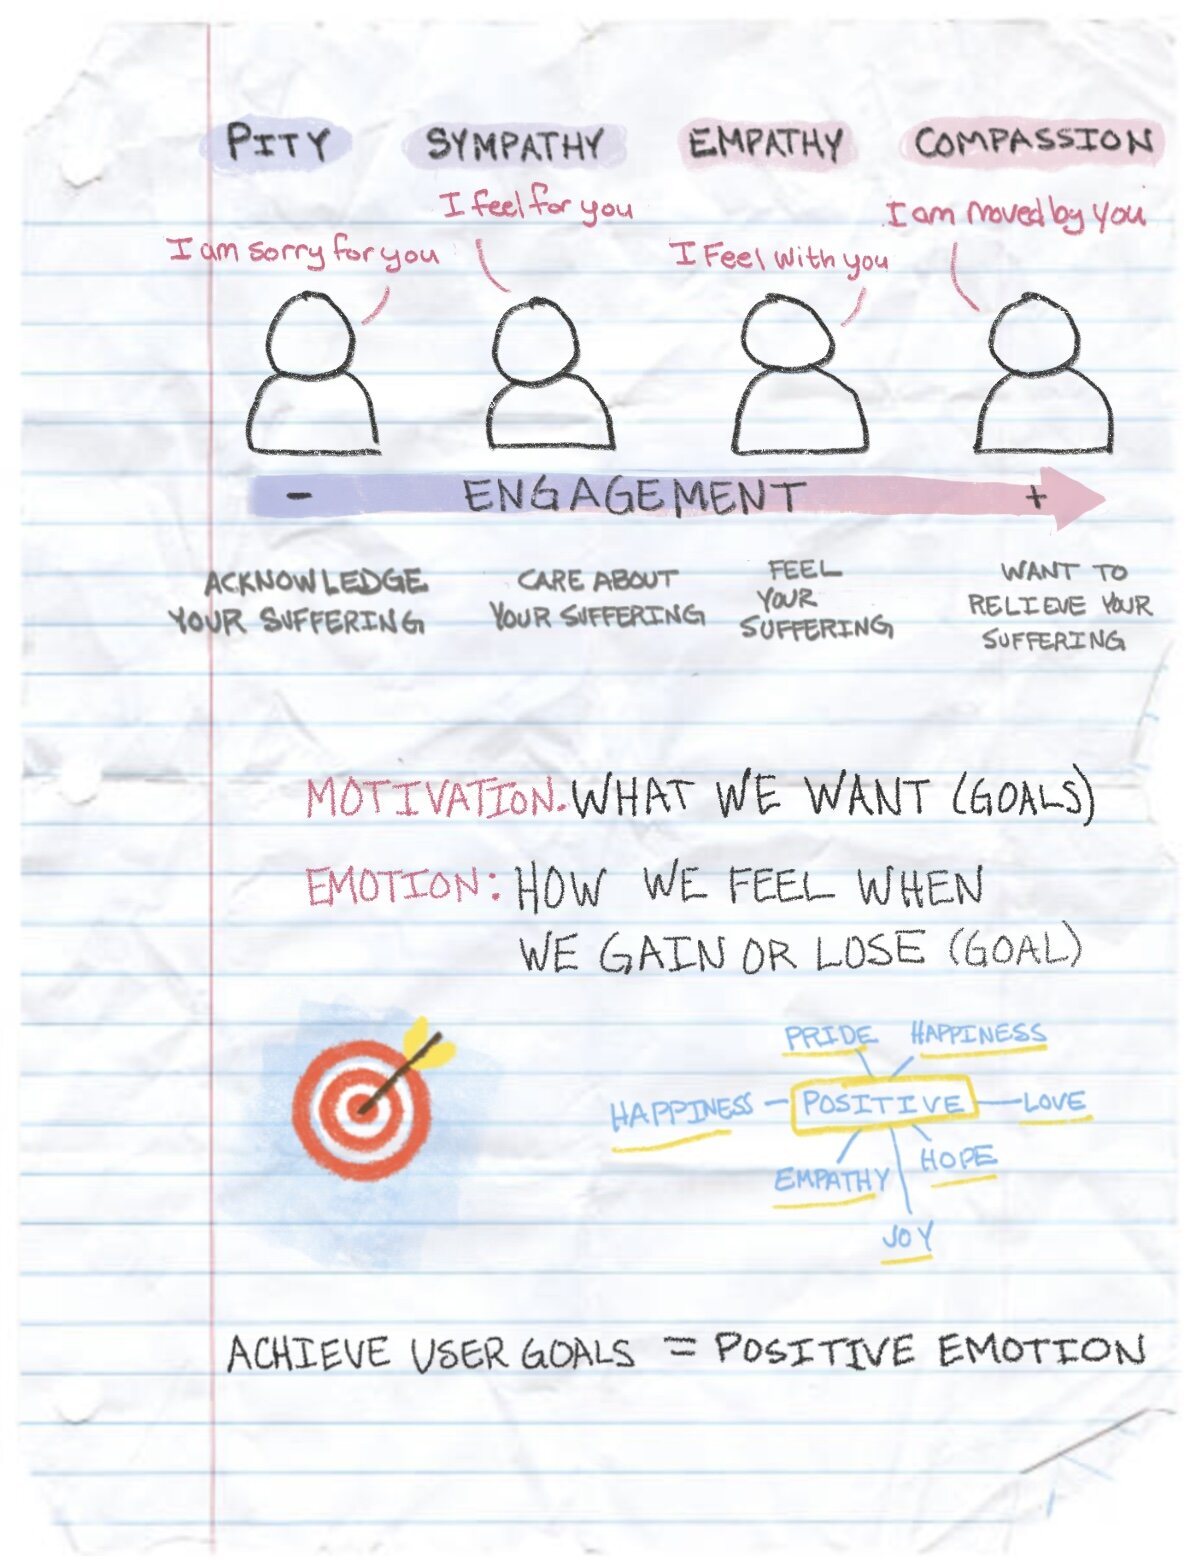 PITY SYMPATHY EMPATHY COMPASSION
I feel for you
I am moved by you
I am sorry for you
I Feel with you
- ENGAGEMENT +
ACKNOWLEDGE
YOUR SUFFERING
CARE ABOUT
YOUR SUFFERING
FEEL
YOUR
SUFFERING
WANT TO
RELIEVE YOUR
SUFFERING
MOTIVATION. WHAT WE WANT (GOALS)
EMOTION: HOW WE FEEL WHEN
WE GAIN OR LOSE (GOAL)
PRIDE HAPPINESS
HAPPINESS - POSITIVE - LOVE
EMPATHY HOPE
JOY
ACHIEVE USER GOALS = POSITIVE EMOTION